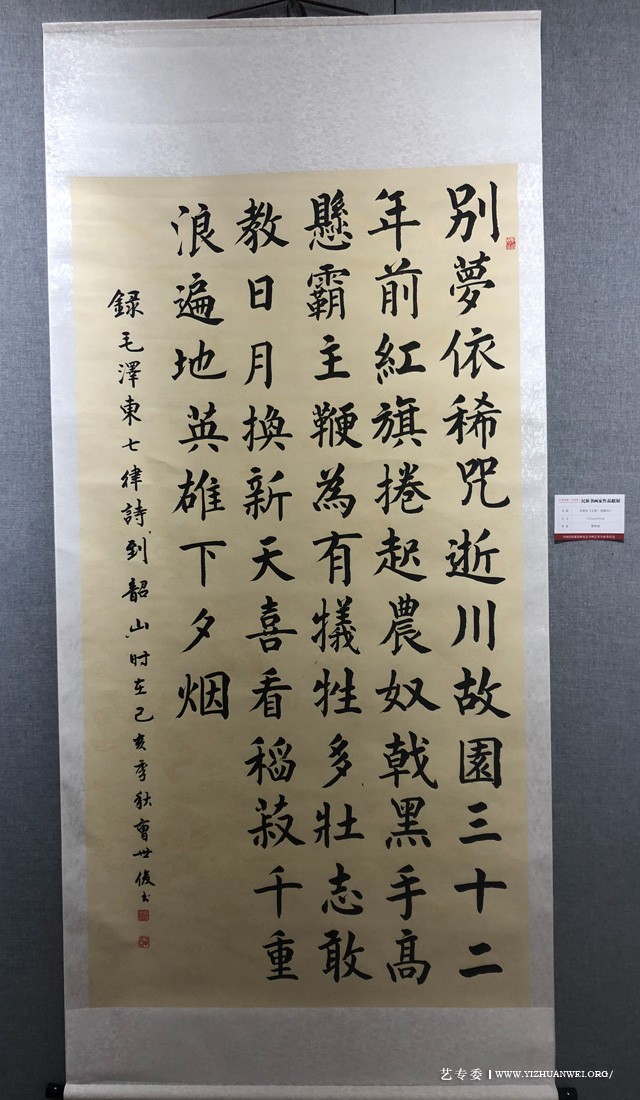 别夢依稀咒逝川故園三十二
年前紅旗捲起農奴戟黑手高
懸霸主鞭為有犧牲多壯志敢
教日月换新天喜看稻菽千重
浪遍地英雄下夕烟
録毛澤東七律詩到韶山时在己亥季秋曾世俊书
艺专委 | WWW.YIZHUANWEI.ORG/